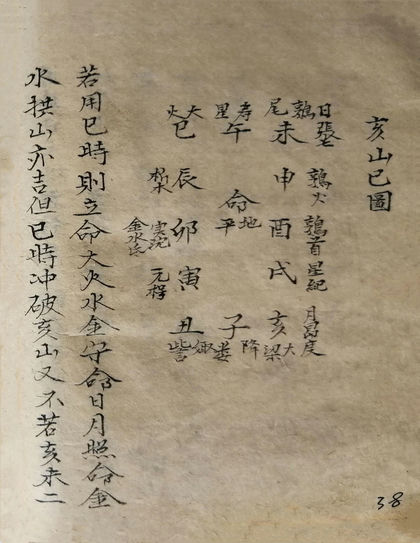 亥山巳圖
日張七 鶉火 鶉首 星紀 月昴度
鶉尾 未 申 酉 戌 亥 大梁
壽星 午 命 地平 子 降婁
大火 巳 辰 卯 寅 丑 娵訾
析木 實沈 元枵
金水氐
若用巳時則立命大火水金守命日月照命金
水拱山亦吉但巳時冲破亥山又不若亥未二
38